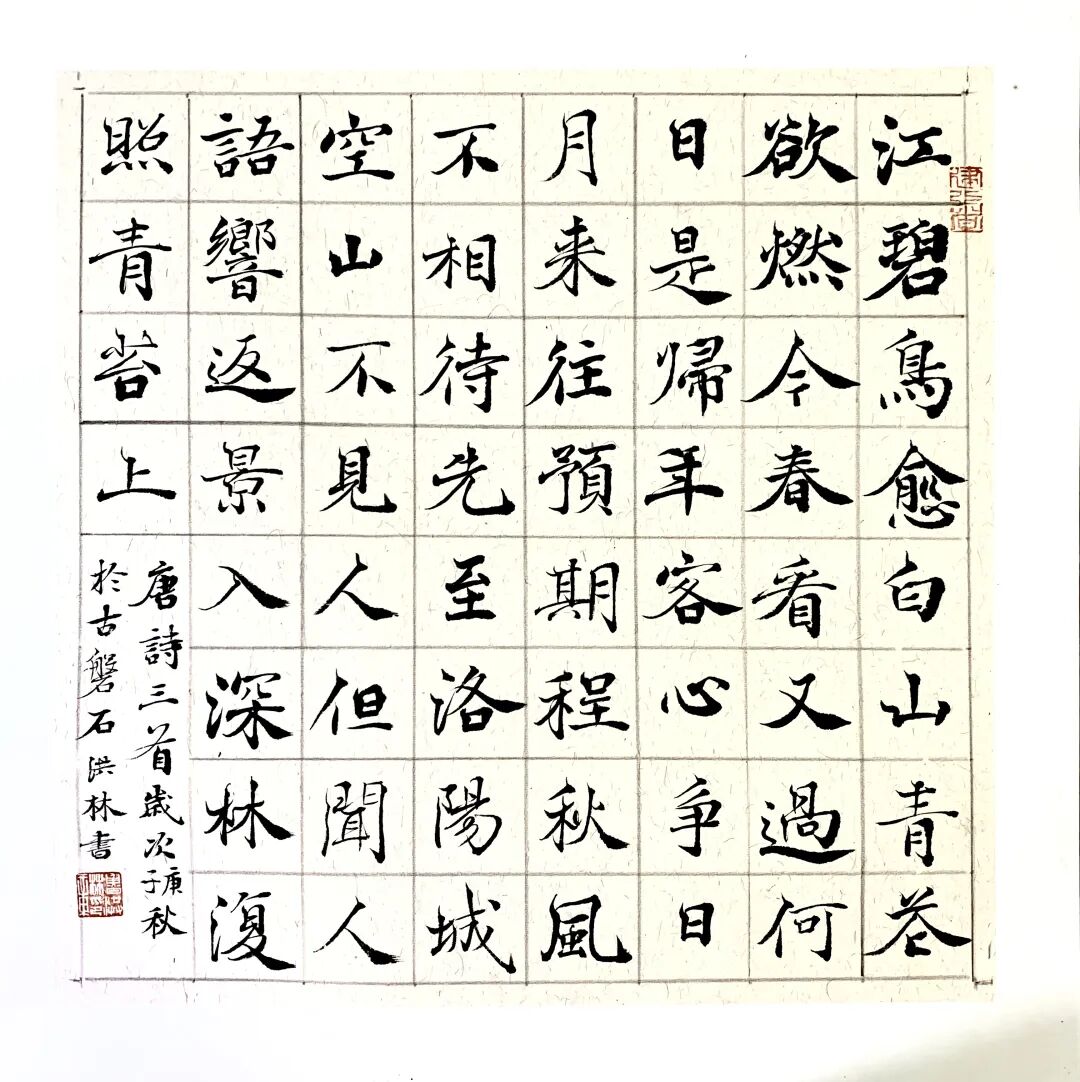 江碧鳥愈白山青花
欲燃今春看又過何
日是帰年客心爭日
月来往預期程秋風
不相待先至洛陽城
空山不見人但聞人
語響返景入深林復
照青苔上
唐詩三首歲次庚子秋
於古磐石洪林書